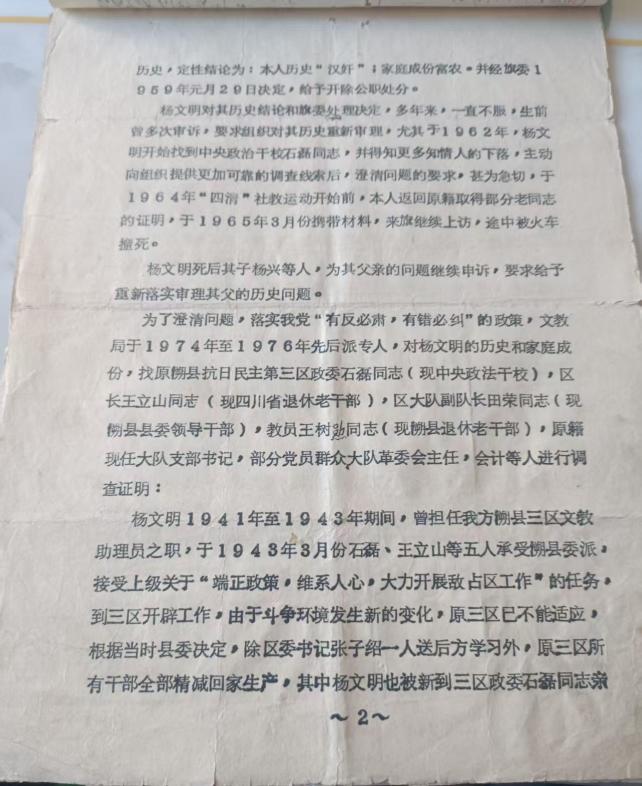 历史，定性结论为：本人历史“汉奸”；家庭成份富农。并经旗委1
959年元月29日决定，给予开除公职处分。
杨文明对其历史结论和旗委处理决定，多年来，一直不服，生前
曾多次审诉，要求组织对其历史重新审理，尤其于1962年，杨文
明开始找到中央政治干校石磊同志，并得知更多知情人的下落，主动
向组织提供更加可靠的调查线索后，澄清问题的要求，甚为急切，于
1964年“四清”社教运动开始前，本人返回原籍取得部分老同志
的证明，于1965年3月份携带材料，来旗继续上访，途中被火车
撞死。
杨文明死后其子杨兴等人，为其父亲的问题继续申诉，要求给予
重新落实审理其父的历史问题。
为了澄清问题，落实我党“有反必肃，有错必纠”的政策，文教
局于1974年至1976年先后派专人，对杨文明的历史和家庭成
份，找原县抗日民主第三区政委石磊同志（现中央政法干校），区
长王立山同志（现四川省退休老干部），区大队副队长田荣同志（现
县县委领导干部），教员王树勋同志（现县退休老干部），原籍
现任大队支部书记，部分党员群众大队革委会主任，会计等人进行调
查证明：
杨文明1941年至1943年期间，曾担任我方县三区文教
助理员之职，于1943年3月份石磊、王立山等五人承受县委派，
接受上级关于“端正政策，维系人心，大力开展敌占区工作”的任务，
到三区开辟工作，由于斗争环境发生新的变化，原三区已不能适应，
根据当时县委决定，除区委书记张子绍一人送后方学习外，原三区所
有干部全部精减回家生产，其中杨文明也被新到三区政委石磊同志亲
～2～